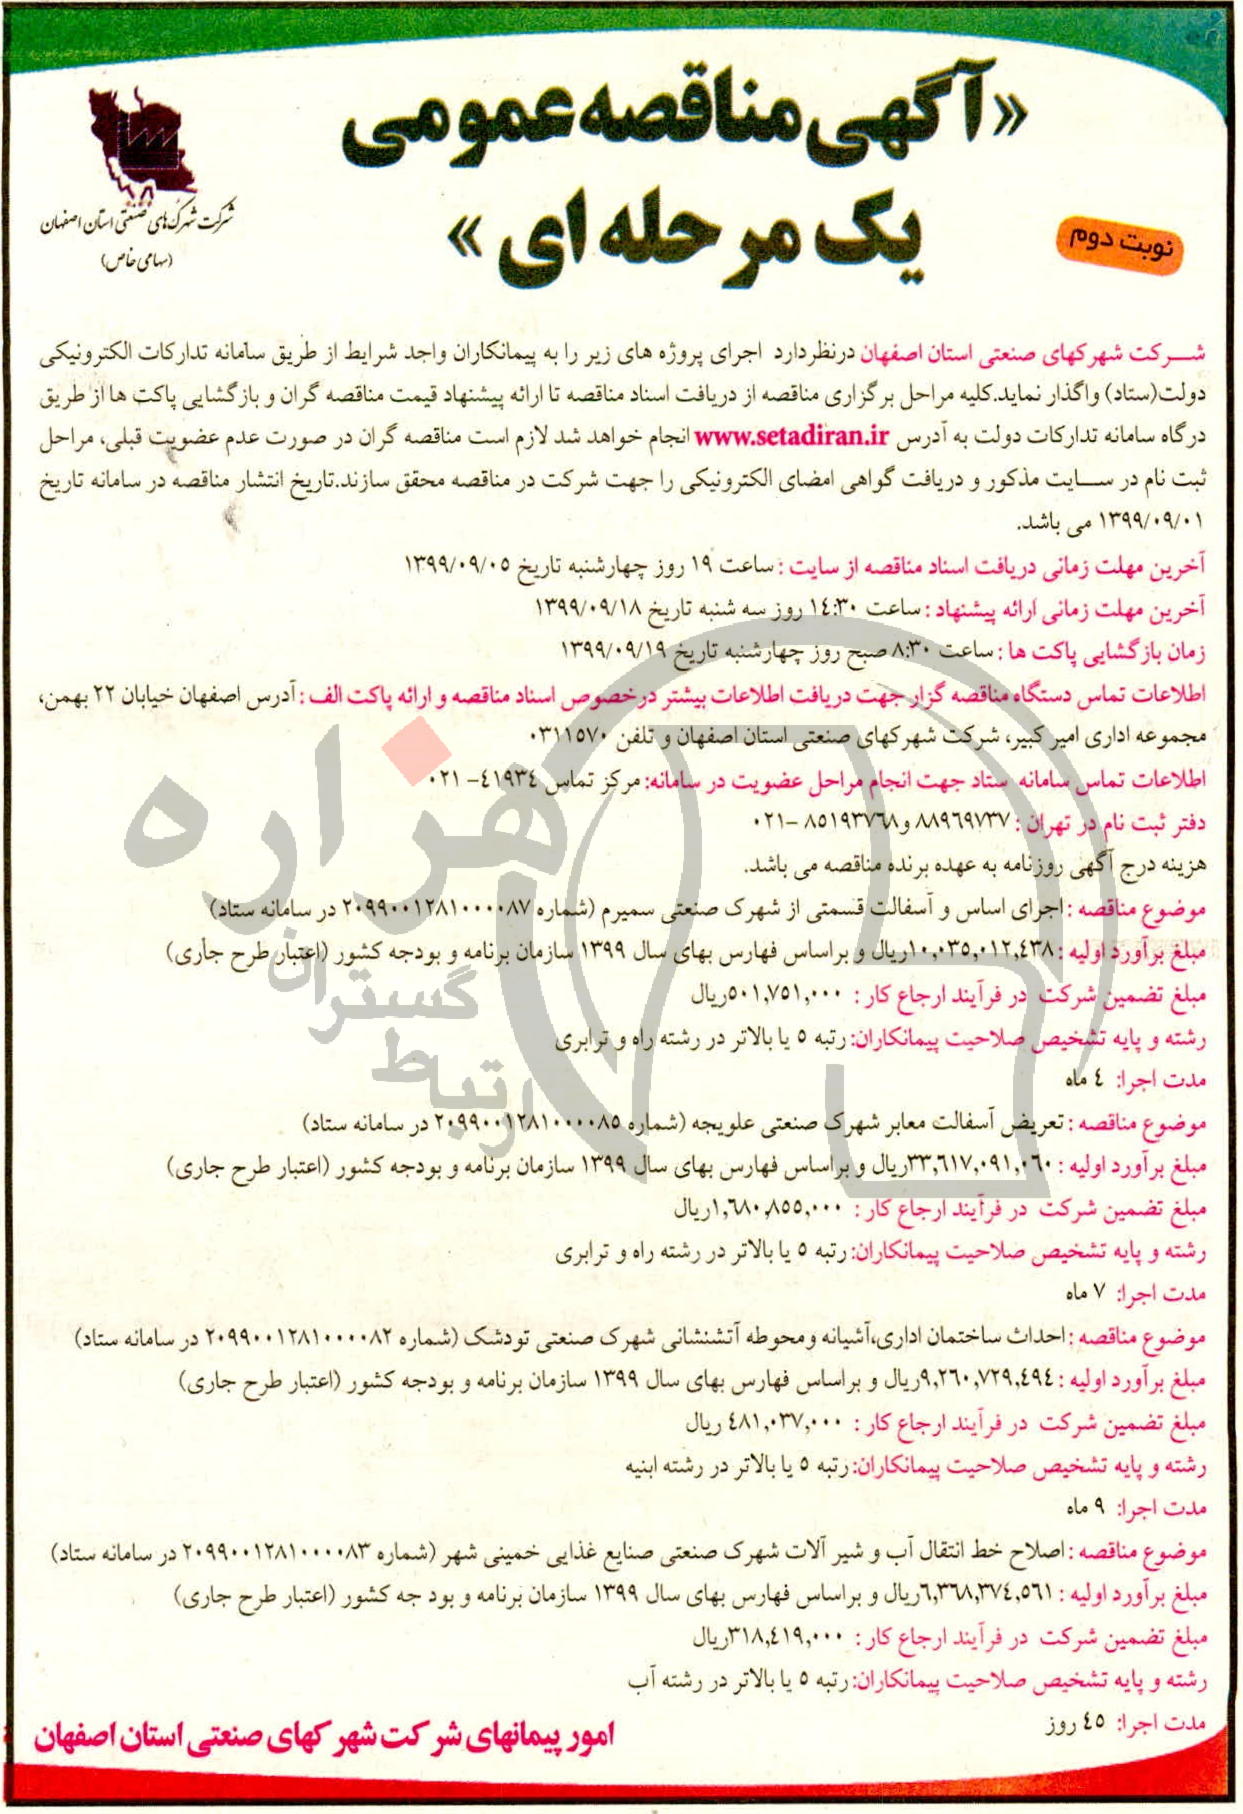 «آگهی مناقصه عمومی
یک مرحله ای»
نوبت دوم
شرکت شهرکهای صنعتی استان اصفهان
(سهامی خاص)
شرکت شهرکهای صنعتی استان اصفهان درنظردارد اجرای پروژه های زیر را به پیمانکاران واجد شرایط از طریق سامانه تدارکات الکترونیکی
دولت(ستاد) واگذار نماید.کلیه مراحل برگزاری مناقصه از دریافت اسناد مناقصه تا ارائه پیشنهاد قیمت مناقصه گران و بازگشایی پاکت ها از طریق
درگاه سامانه تدارکات دولت به آدرس www.setadiran.ir انجام خواهد شد لازم است مناقصه گران در صورت عدم عضویت قبلی، مراحل
ثبت نام در سایت مذکور و دریافت گواهی امضای الکترونیکی را جهت شرکت در مناقصه محقق سازند.تاریخ انتشار مناقصه در سامانه تاریخ
۱۳۹۹/۰۹/۰۱ می باشد.
آخرین مهلت زمانی دریافت اسناد مناقصه از سایت : ساعت ۱۹ روز چهارشنبه تاریخ ۱۳۹۹/۰۹/۰۵
آخرین مهلت زمانی ارائه پیشنهاد : ساعت ۱۴:۳۰ روز سه شنبه تاریخ ۱۳۹۹/۰۹/۱۸
زمان بازگشایی پاکت ها : ساعت ۸:۳۰ صبح روز چهارشنبه تاریخ ۱۳۹۹/۰۹/۱۹
اطلاعات تماس دستگاه مناقصه گزار جهت دریافت اطلاعات بیشتر درخصوص اسناد مناقصه و ارائه پاکت الف : آدرس اصفهان خیابان ۲۲ بهمن،
مجموعه اداری امیر کبیر، شرکت شهرکهای صنعتی استان اصفهان و تلفن ۰۳۱۱۵۷۰
اطلاعات تماس سامانه ستاد جهت انجام مراحل عضویت در سامانه: مرکز تماس ۴۱۹۳۴- ۰۲۱
دفتر ثبت نام در تهران : ۸۸۹۶۹۷۳۷ و ۸۵۱۹۳۷۶۸ -۰۲۱
هزینه درج آگهی روزنامه به عهده برنده مناقصه می باشد.
موضوع مناقصه : اجرای اساس و آسفالت قسمتی از شهرک صنعتی سمیرم (شماره ۲۰۹۹۰۰۱۲۸۱۰۰۰۰۸۷ در سامانه ستاد)
مبلغ برآورد اولیه : ۱۰,۰۳۵,۰۱۲,۴۳۸ریال و براساس فهارس بهای سال ۱۳۹۹ سازمان برنامه و بودجه کشور (اعتبار طرح جاری)
مبلغ تضمین شرکت در فرآیند ارجاع کار : ۵۰۱,۷۵۱,۰۰۰ریال
رشته و پایه تشخیص صلاحیت پیمانکاران: رتبه ۵ یا بالاتر در رشته راه و ترابری
مدت اجرا: ۴ ماه
موضوع مناقصه : تعریض آسفالت معابر شهرک صنعتی علویجه (شماره ۲۰۹۹۰۰۱۲۸۱۰۰۰۰۸۵ در سامانه ستاد)
مبلغ برآورد اولیه : ۳۳,۶۱۷,۰۹۱,۰۶۰ریال و براساس فهارس بهای سال ۱۳۹۹ سازمان برنامه و بودجه کشور (اعتبار طرح جاری)
مبلغ تضمین شرکت در فرآیند ارجاع کار : ۱,۶۸۰,۸۵۵,۰۰۰ریال
رشته و پایه تشخیص صلاحیت پیمانکاران: رتبه ۵ یا بالاتر در رشته راه و ترابری
مدت اجرا: ۷ ماه
موضوع مناقصه : احداث ساختمان اداری،آشیانه ومحوطه آتشنشانی شهرک صنعتی تودشک (شماره ۲۰۹۹۰۰۱۲۸۱۰۰۰۰۸۲ در سامانه ستاد)
مبلغ برآورد اولیه : ۹,۲۶۰,۷۲۹,۴۹۴ریال و براساس فهارس بهای سال ۱۳۹۹ سازمان برنامه و بودجه کشور (اعتبار طرح جاری)
مبلغ تضمین شرکت در فرآیند ارجاع کار : ۴۸۱,۰۳۷,۰۰۰ ریال
رشته و پایه تشخیص صلاحیت پیمانکاران: رتبه ۵ یا بالاتر در رشته ابنیه
مدت اجرا: ۹ ماه
موضوع مناقصه : اصلاح خط انتقال آب و شیر آلات شهرک صنعتی صنایع غذایی خمینی شهر (شماره ۲۰۹۹۰۰۱۲۸۱۰۰۰۰۸۳ در سامانه ستاد)
مبلغ برآورد اولیه : ۶,۳۶۸,۳۷۴,۵۶۱ریال و براساس فهارس بهای سال ۱۳۹۹ سازمان برنامه و بود جه کشور (اعتبار طرح جاری)
مبلغ تضمین شرکت در فرآیند ارجاع کار : ۳۱۸,۴۱۹,۰۰۰ریال
رشته و پایه تشخیص صلاحیت پیمانکاران: رتبه ۵ یا بالاتر در رشته آب
مدت اجرا: ۴۵ روز
امور پیمانهای شرکت شهرکهای صنعتی استان اصفهان
هزاره
گستران
ارتباط